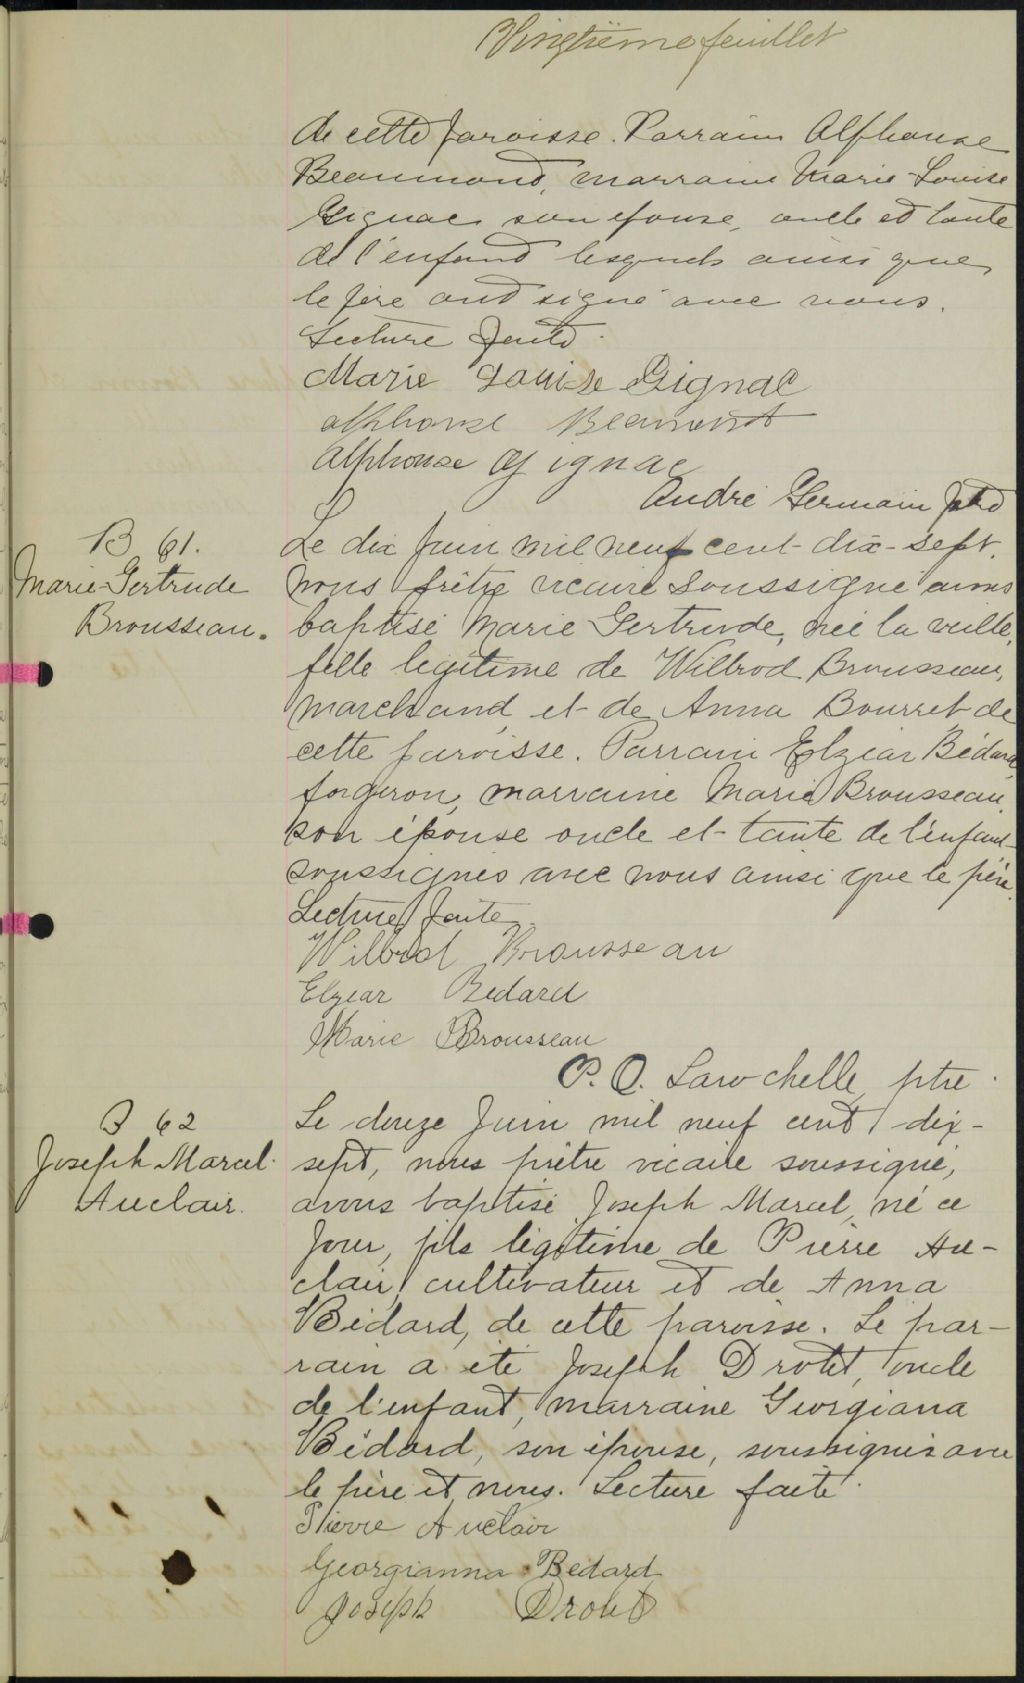 Vingtième feuillet
de cette paroisse. Parrain Alphonse
Beaumond, marraine Marie-Louise
Gignac son épouse, oncle et tante
de l'enfand lesquels ainsi que
le père ont signé avec nous.
Lecture faite.
Marie Louise Gignac
Alphonse Beaumont
Alphonse Gignac
André Germain ptre
B 61.
Marie-Gertrude
Brousseau.
Le dix juin mil neuf cent-dix-sept,
nous prêtre vicaire soussigné avons
baptisé Marie Gertrude, née la veille,
fille légitime de Wilbrod Brousseau,
marchand, et de Anna Bourret de
cette paroisse. Parrain Elzéar Bédard,
forgeron, marraine Marie Brousseau
son épouse oncle et tante de l'enfant
soussignés avec nous ainsi que le père.
Lecture faite.
Wilbrod Brousseau
Elzear Bedard
Marie Brousseau
P. O. Larochelle ptre.
B 62
Joseph Marcel
Auclair.
Le douze Juin mil neuf cent dix-
sept, nous prêtre vicaire soussigné,
avons baptisé Joseph Marcel, né ce
jour, fils légitime de Pierre Au-
clair, cultivateur et de Anna
Bédard, de cette paroisse. Le par-
rain a été Joseph Drolet, oncle
de l'enfant, marraine Georgiana
Bédard, son épouse, soussignés avec
le père et nous. Lecture faite.
Pierre Auclair
Georgianna Bedard
Joseph Drolet